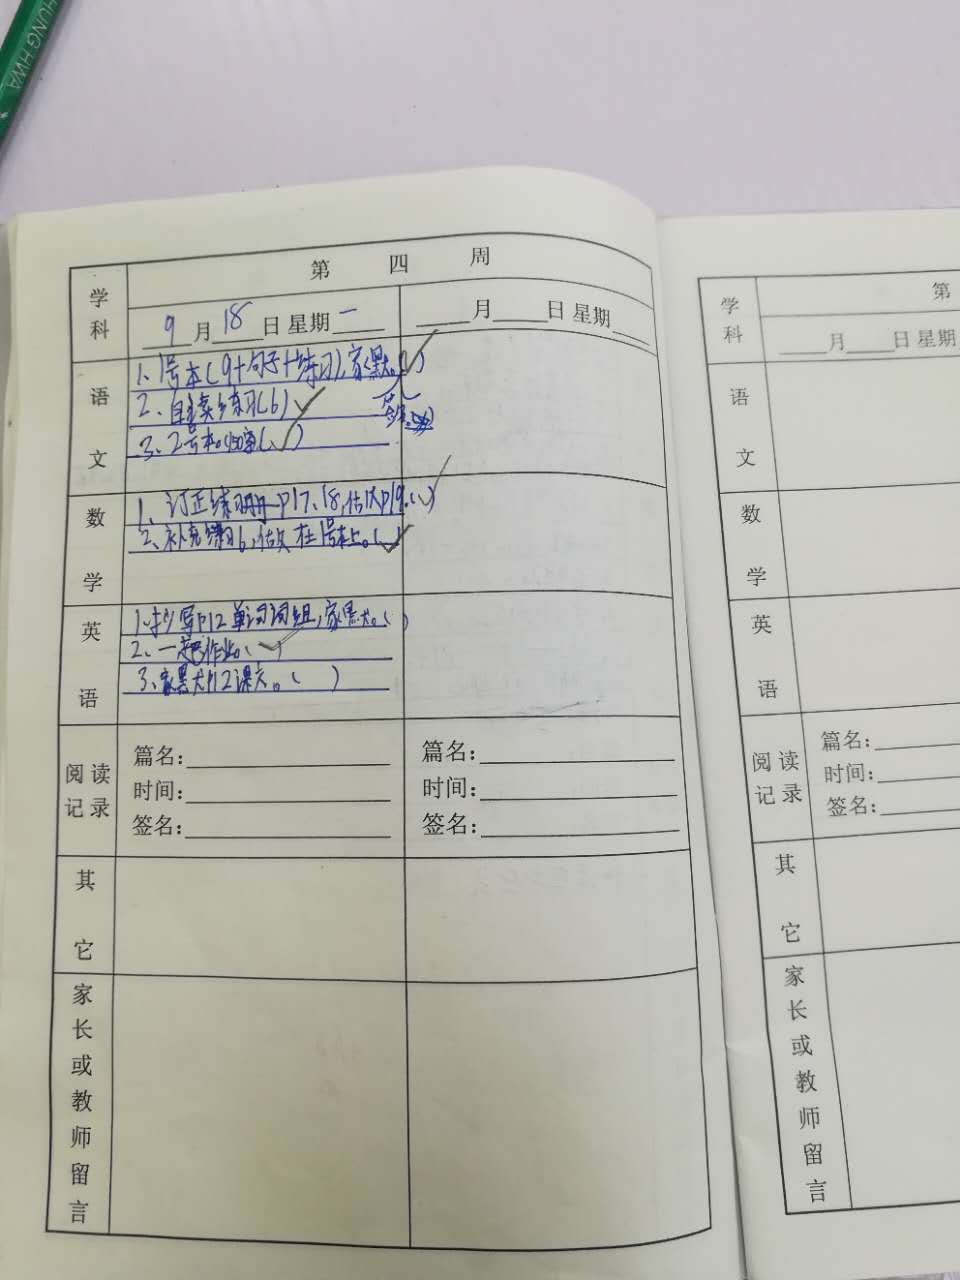 HUNG HWA
学科
第 四 周
9月18日 星期一
月 日 星期
语文
1、1号本(9+句子+练习),家默。( )
2、自主练习(6)
3、2号本。450字( )
数学
1、订正练习册P17、18,估P19。( )
2、补充练习6, 在1号本上。( )
英语
1、抄写P12单词词组,家默。( )
2、一起作业。( )
3、家默P12课文。( )
阅读记录
篇名:
时间:
签名:
篇名:
时间:
签名:
其它
家长或教师留言
学科
第
月 日 星期
语文
数学
英语
阅读记录
篇名:
时间:
签名:
其它
家长或教师留言